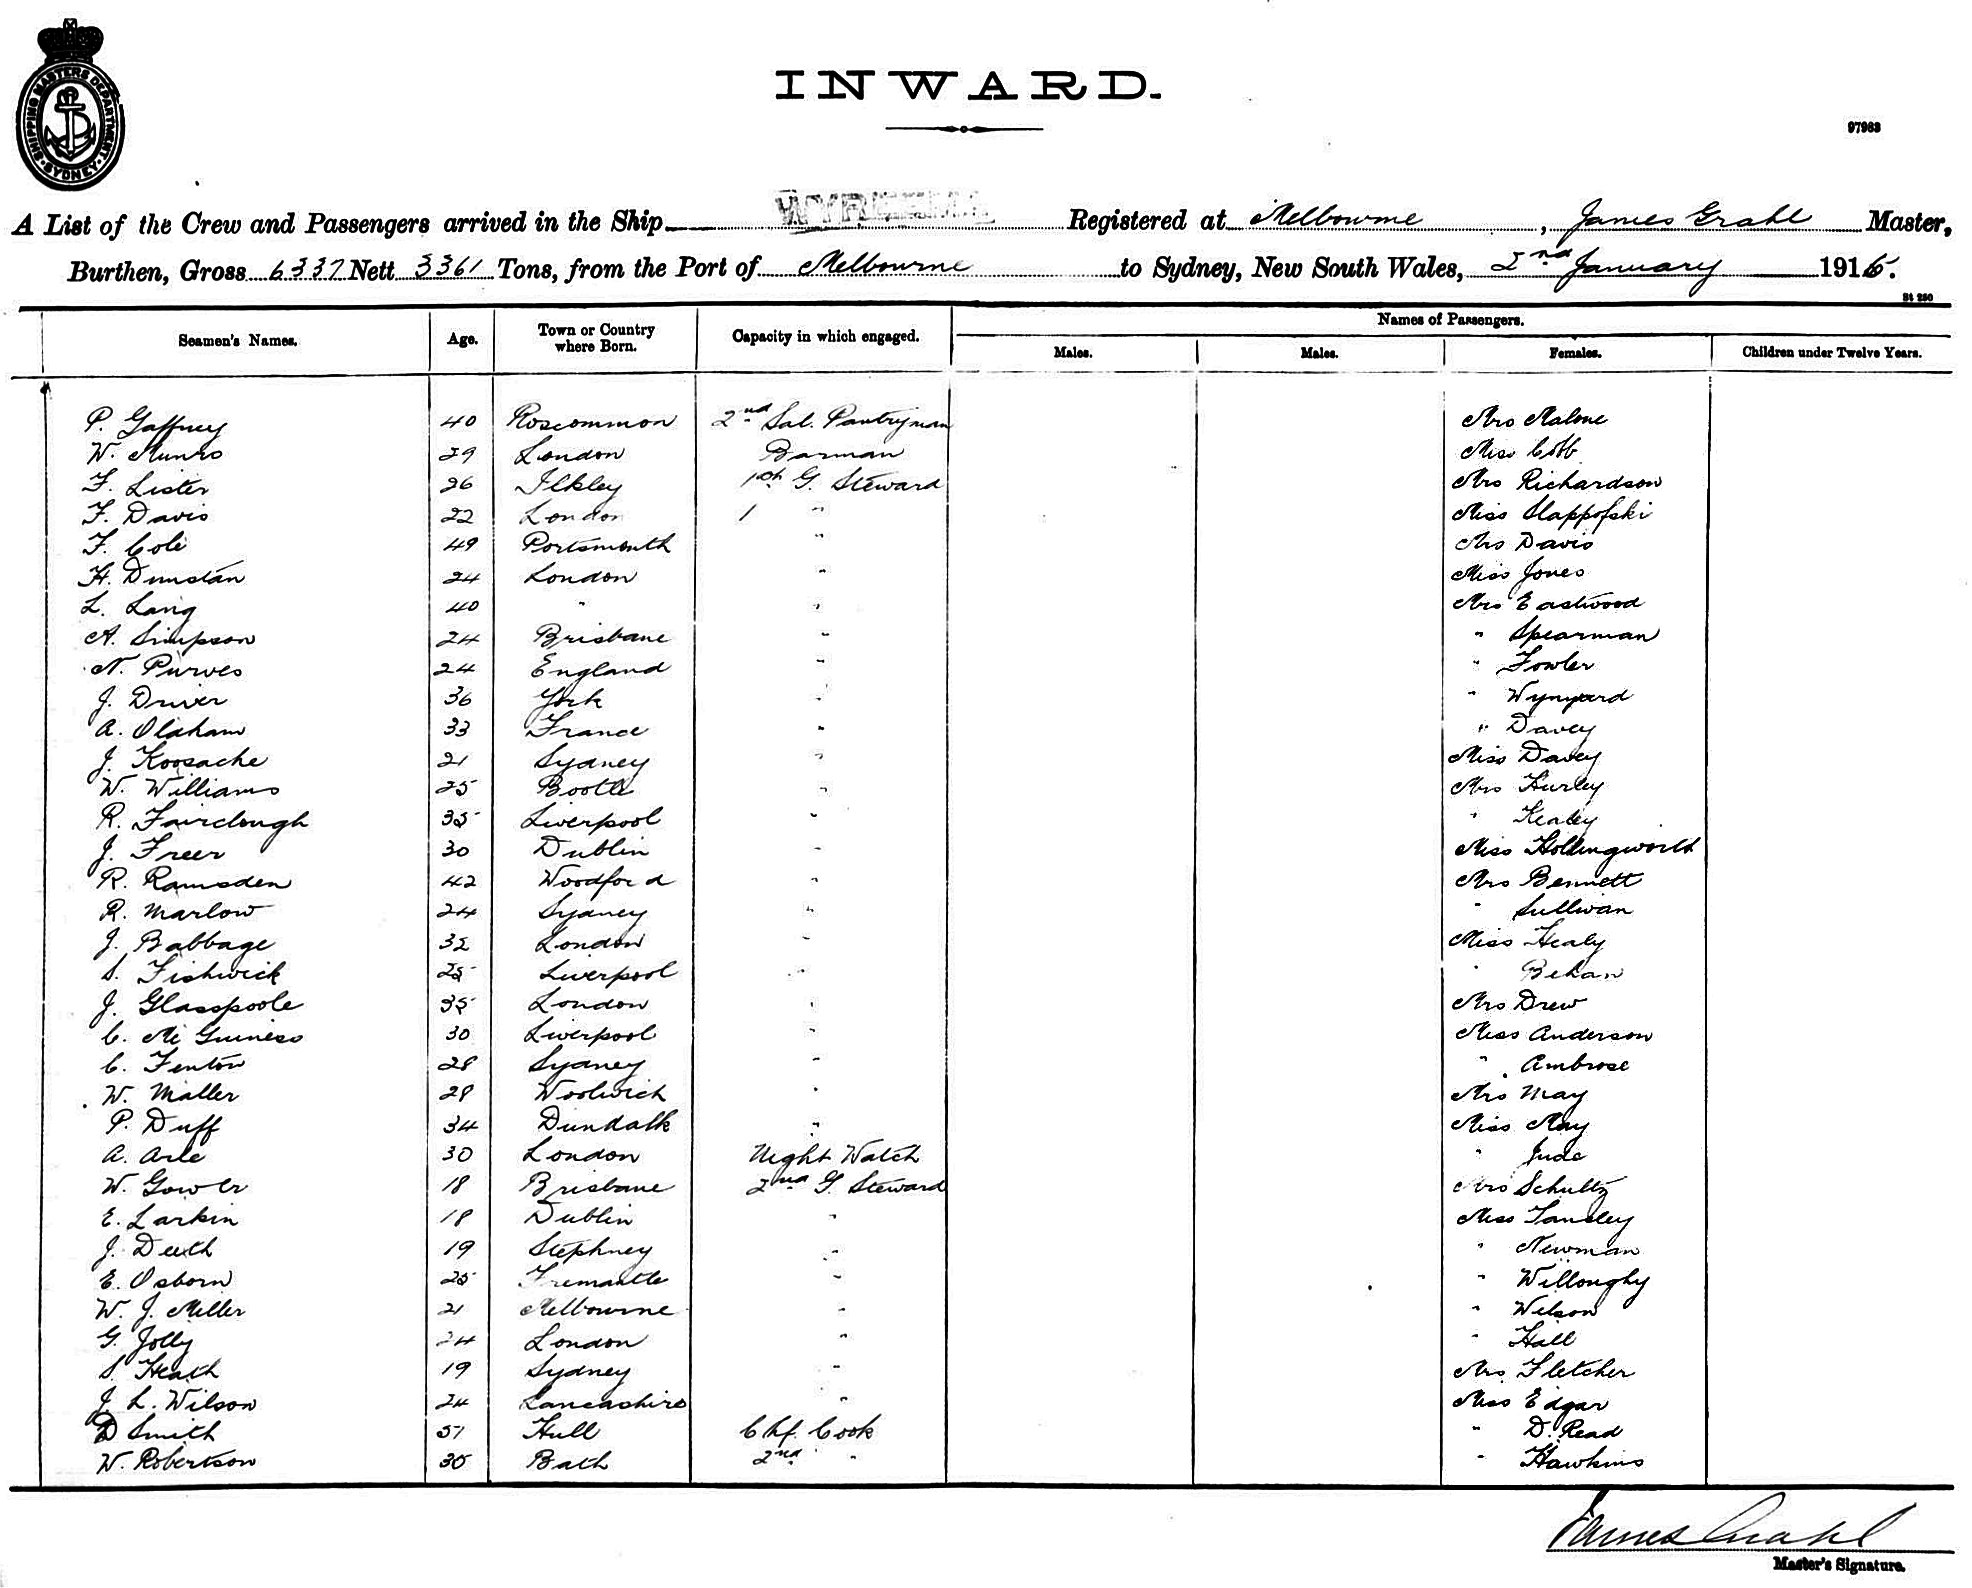 SHIPPING MASTERS DEPARTMENT SYDNEY
INWARD.
97963
A List of the Crew and Passengers arrived in the Ship WYREEMA Registered at Melbourne, James Grahl Master,
Burthen, Gross 6337 Nett 3361 Tons, from the Port of Melbourne to Sydney, New South Wales, 2nd January 1916.
St 250
Seamen's Names. Age. Town or Country where Born. Capacity in which engaged. Names of Passengers.
Males. Males. Females. Children under Twelve Years.
P. Gaffney 40 Roscommon 2nd Sal. Pantryman Mrs Malone
W. Munro 29 London Barman Miss Cobb
F. Lister 26 Ilkley 1st G. Steward Mrs Richardson
F. Davis 22 London 1 " Miss Slappofski
F. Cole 49 Portsmouth " Mrs Davis
H. Dunstan 24 London " Miss Jones
L. Lang 40 " " Mrs Eastwood
A. Simpson 24 Brisbane " " Spearman
N. Purves 24 England " " Fowler
J. Driver 36 York " " Wynyard
A. Oldham 33 France " " Davey
J. Koosache 21 Sydney " Miss Davey
W. Williams 25 Bootle " Mrs Hurley
R. Fairclough 35 Liverpool " " Kealey
J. Freer 30 Dublin " Miss Hollingworth
R. Ramsden 42 Woodford " Mrs Bennett
R. Marlow 24 Sydney " " Sullivan
J. Babbage 32 London " Miss Healy
S. Fishwick 25 Liverpool " " Behan
J. Glasspoole 35 London " Mrs Drew
C. McGuiness 30 Liverpool " Miss Anderson
C. Fenton 28 Sydney " " Ambrose
W. Maller 29 Woolwich " Mrs May
P. Duff 34 Dundalk " Miss May
A. Arle 30 London Night Watch " Jude
W. Gower 18 Brisbane 2nd G. Steward Mrs Schultz
E. Larkin 18 Dublin " Miss Tansley
J. Deeth 19 Stephney " " Newman
E. Osborn 25 Fremantle " " Willoughy
W. J. Miller 21 Melbourne " " Wilson
G. Jolly 24 London " " Hall
S. Heath 19 Sydney " Mrs Fletcher
J. L. Wilson 24 Lancashire " Miss Edgar
D Smith 51 Hull Chf. Cook " D. Read
W. Robertson 35 Bath 2nd " " Hawkins
James Grahl
Master's Signature.